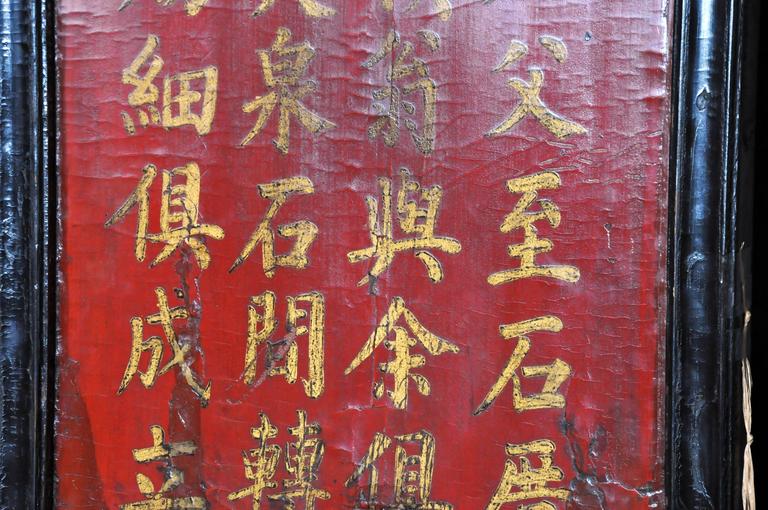 父至石屋
翁與余俱
泉石間轉
細俱成立